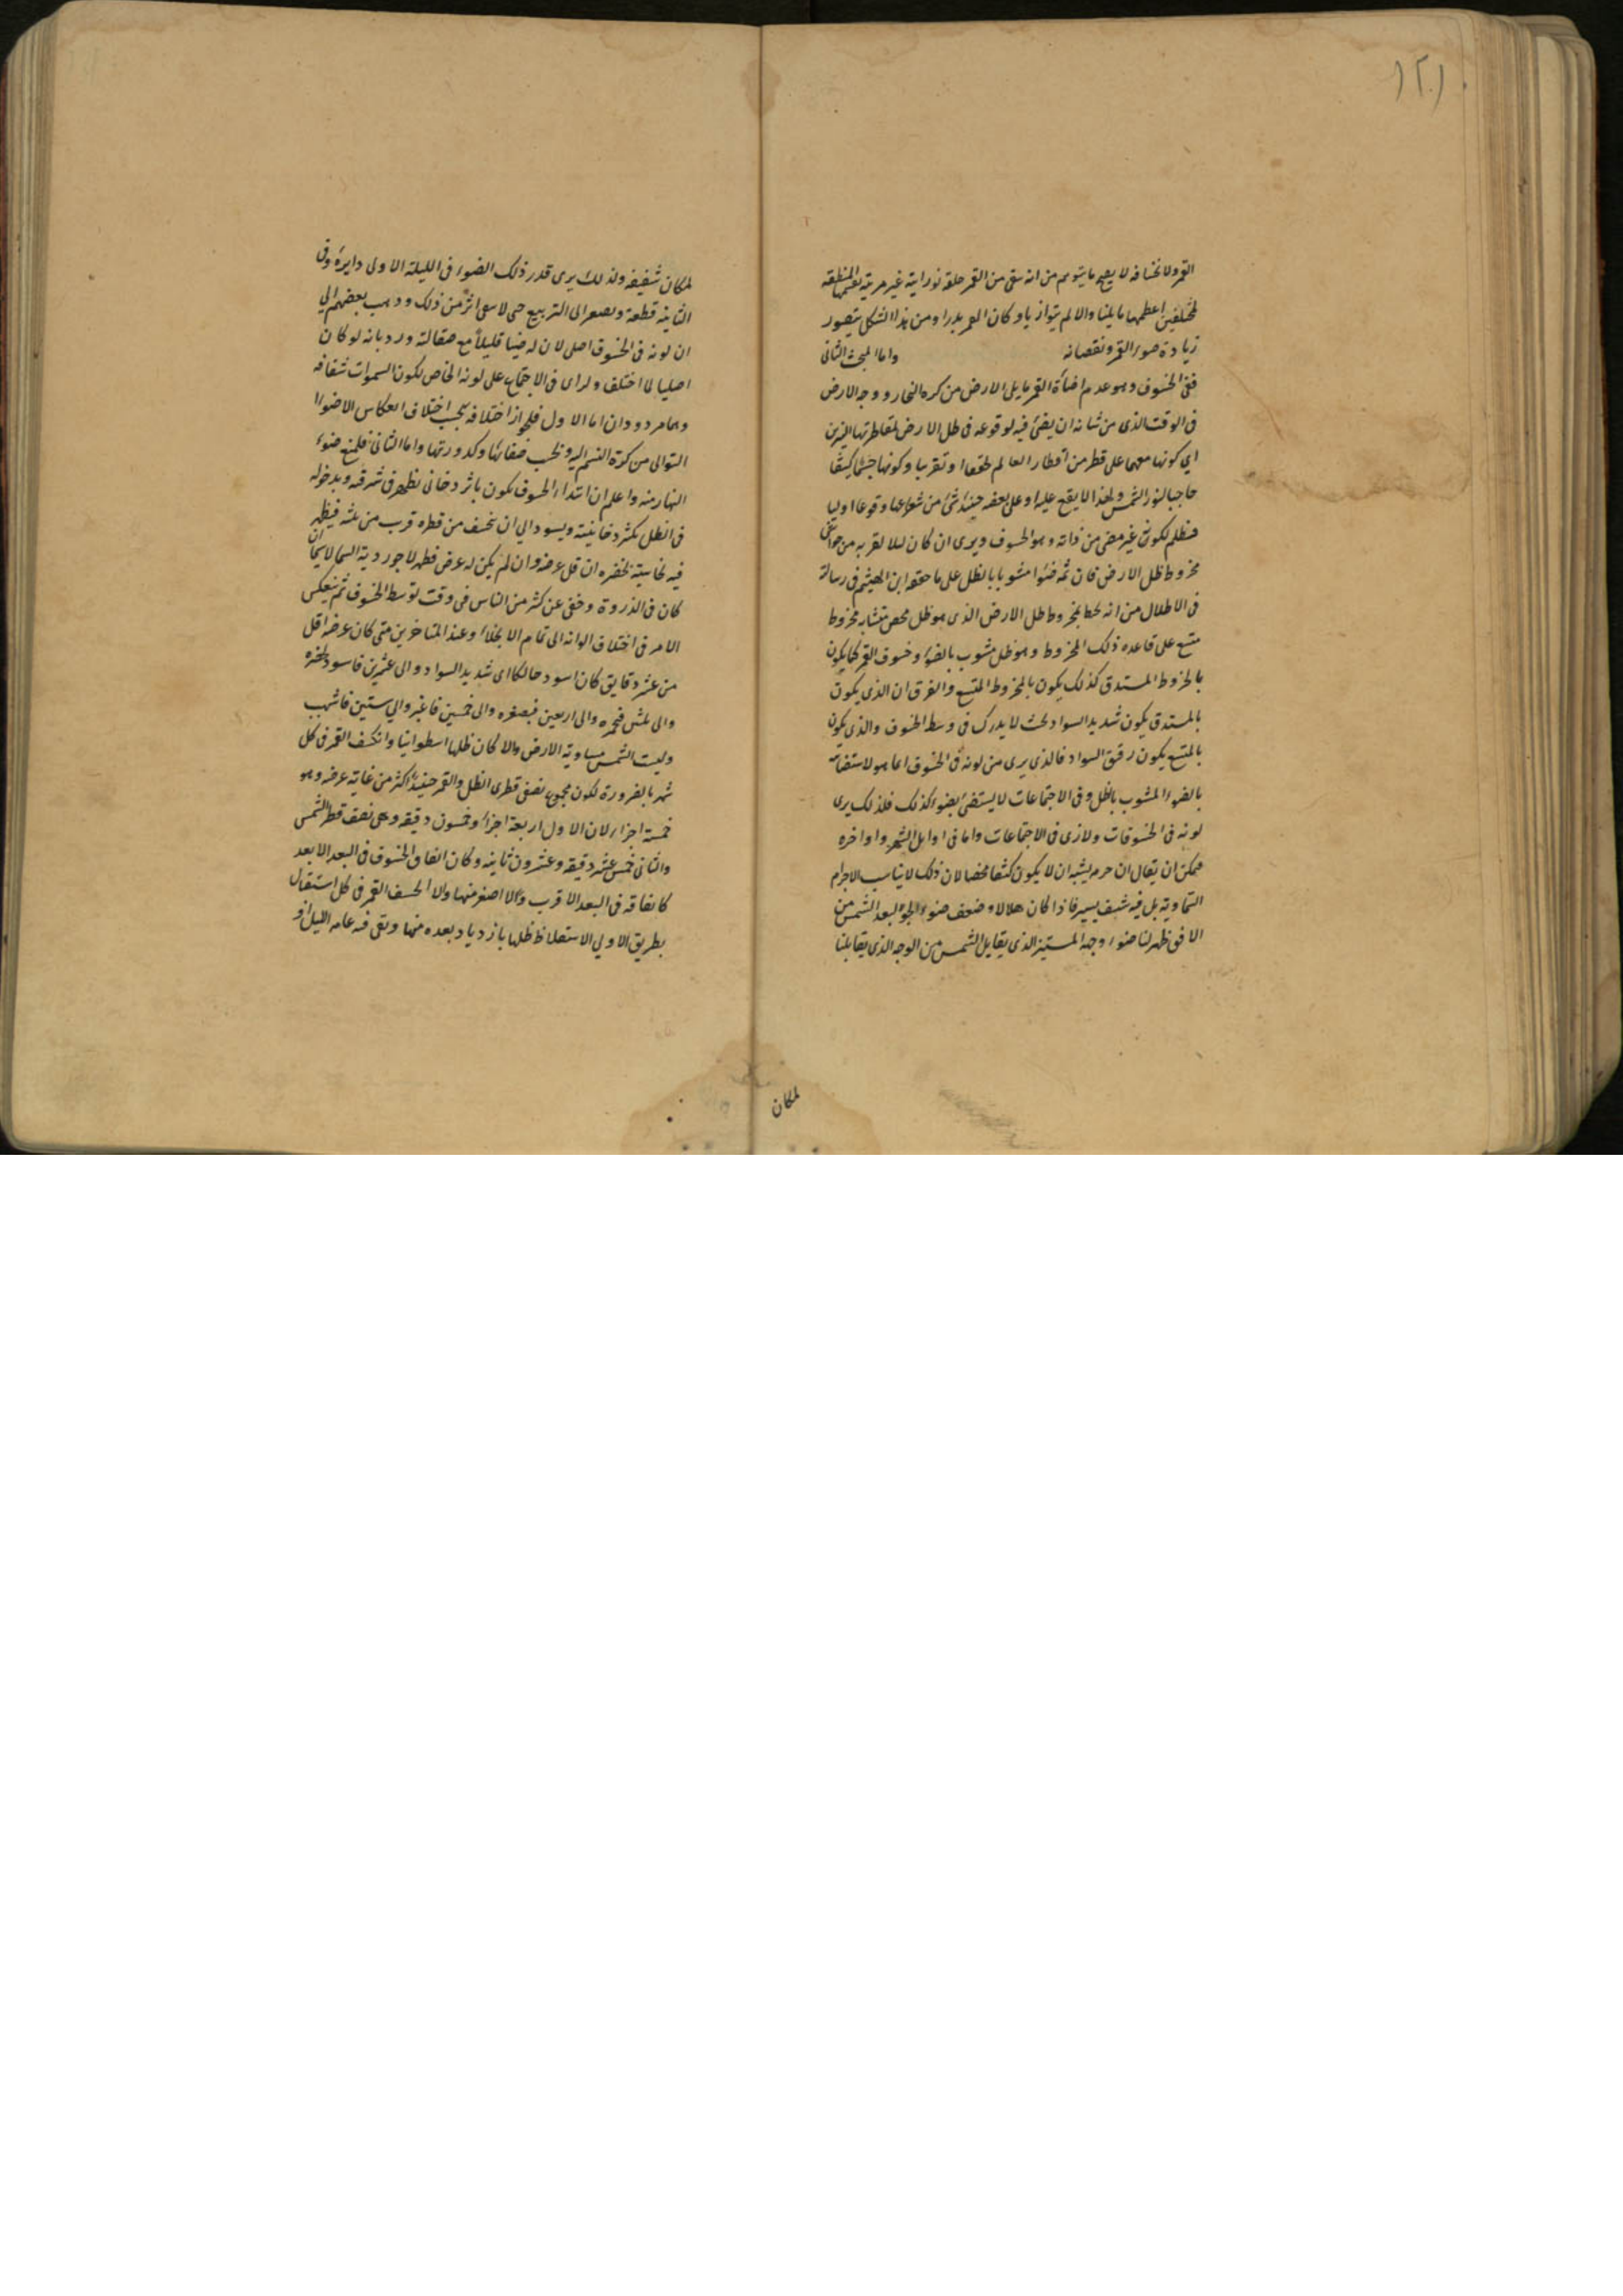 ١٢١
القمر ولانخسافه لا يصح ما يتوهم من انه يبقى من القمر حلقة نورانية غير مرئية لقسمتها المنطقه
مختلفين اعظمهما ما يلينا والا لم يتوازيا وكان القمر بدرا ومن هذا الشكل يتصور
زيادة ضوء القمر ونقصانه واما المبحث الثانى
ففى الخسوف وهو عدم اضاءة القمر ما يلى الارض من كره البخار ووجه الارض
فى الوقت الذى من شانه ان يضئ فيه لوقوعه فى ظل الارض لمقاطرتها النيرين
اى كونها معهما على قطر من اقطار العالم تحقيقا او تقريبا وكونها جسما كثيفا
حاجبا لنور الشمس ولهذا لا يقع عليه او على بعضه حينئذ شئ من شعاعها وقوعا اوليا
فيظلم لكونه غير مضئ من ذاته وهو الخسوف ويرى ان كان ليلا لقربه من حواشى
مخروط ظل الارض فان ثمه ضوءا مشوبا بالظل على ما حققه ابن الهيثم فى رسالة
فى الاظلال من انه يحيط بمخروط ظل الارض الذى هو ظل محض متشابه مخروط
متسع على قاعده ذلك المخروط وهو ظل مشوب بالضوء وخسوف القمر كما يكون
بالمخروط المستدق كذلك يكون بالمخروط المتسع والفرق ان الذى يكون
بالمستدق يكون شديد السواد بحيث لا يدرك فى وسط الخسوف والذى يكون
بالمتسع يكون رقيق السواد فالذى يرى من لونه فى الخسوف انما هو لاستضاءته
بالضوء المشوب بالظل وفى الاجتماعات لا يستضئ بضوء كذلك فلذلك يرى
لونه فى الخسوفات ولا ترى فى الاجتماعات واما فى اوايل الشهر واواخره
فيمكن ان يقال ان جرمه يشبه ان لا يكون كثيفا محضا لان ذلك لا يناسب الاجرام
السماوية بل فيه شفيف يسير فاذا كان هلالا وضعف ضوء الجو لبعد الشمس من
الافق ظهر لنا ضوء وجهه المستنير الذى يقابل الشمس من الوجه الذى يقابلنا
لمكان
لمكان شفيفه ولذلك يرى قدر ذلك الضوء فى الليلة الاولى دايرة وفى
الثانية قطعة ويصغر الى التربيع حتى لا يبقى اثر من ذلك وذهب بعضهم الى
ان لونه فى الخسوف اصلى لان له ضياء قليلا مع صقالته ورد بانه لو كان
اصليا لما اختلف ولراى فى الاجتماع على لونه الخاص لكون السموات شفافه
وهما مردودان اما الاول فلجواز اختلافه بحسب اختلاف انعكاس الاضواء
التوالى من كرة النسيم اليه وبحسب صفائها وكدورتها واما الثانى فلمنع ضوء
النهار منه واعلم ان ابتداء الخسوف يكون باثر دخانى يظهر فى شرقه وبدخوله
فى الظل يكثر دخانيته ويسود الى ان يخسف من قطره قرب من ثلثه فيظهر
فيه نحاسية بخضره ان قل عرضه وان لم يكن له عرض فيظهر لاجوردية السما لا سيما ان
كان فى الذروة وخفى عن كثير من الناس فى وقت توسط الخسوف ثم ينعكس
الامر فى اختلاف الوانه الى تمام الانجلاء وعند المتاخرين متى كان عرضه اقل
من عشر دقايق كان اسود حالكا اى شديد السواد والى عشرين فاسود بخضره
والى ثلثين فبحمره والى اربعين فبصفره والى خمسين فاغبر والى ستين فاشهب
وليست الشمس مساوية الارض والا كان ظلها اسطوانيا وانكسف القمر فى كل
شهر بالضرورة لكون مجموع نصفى قطرى الظل والقمر حينئذ اكثر من غاية عرضه وهو
خمسة اجزاء لان الاول اربعة اجزاء وخمسون دقيقه وهى نصف قطر الشمس
والثانى خمس عشر دقيقه وعشرون ثانية وكان اتفاق الخسوف فى البعد الابعد
كاتفاقه فى البعد الاقرب ولا اصغر منها والا لخسف القمر فى كل استقبال
بطريق الاولى لاستغلاظ ظلها بازدياد بعده منها وبقى فيه عامه الليل او